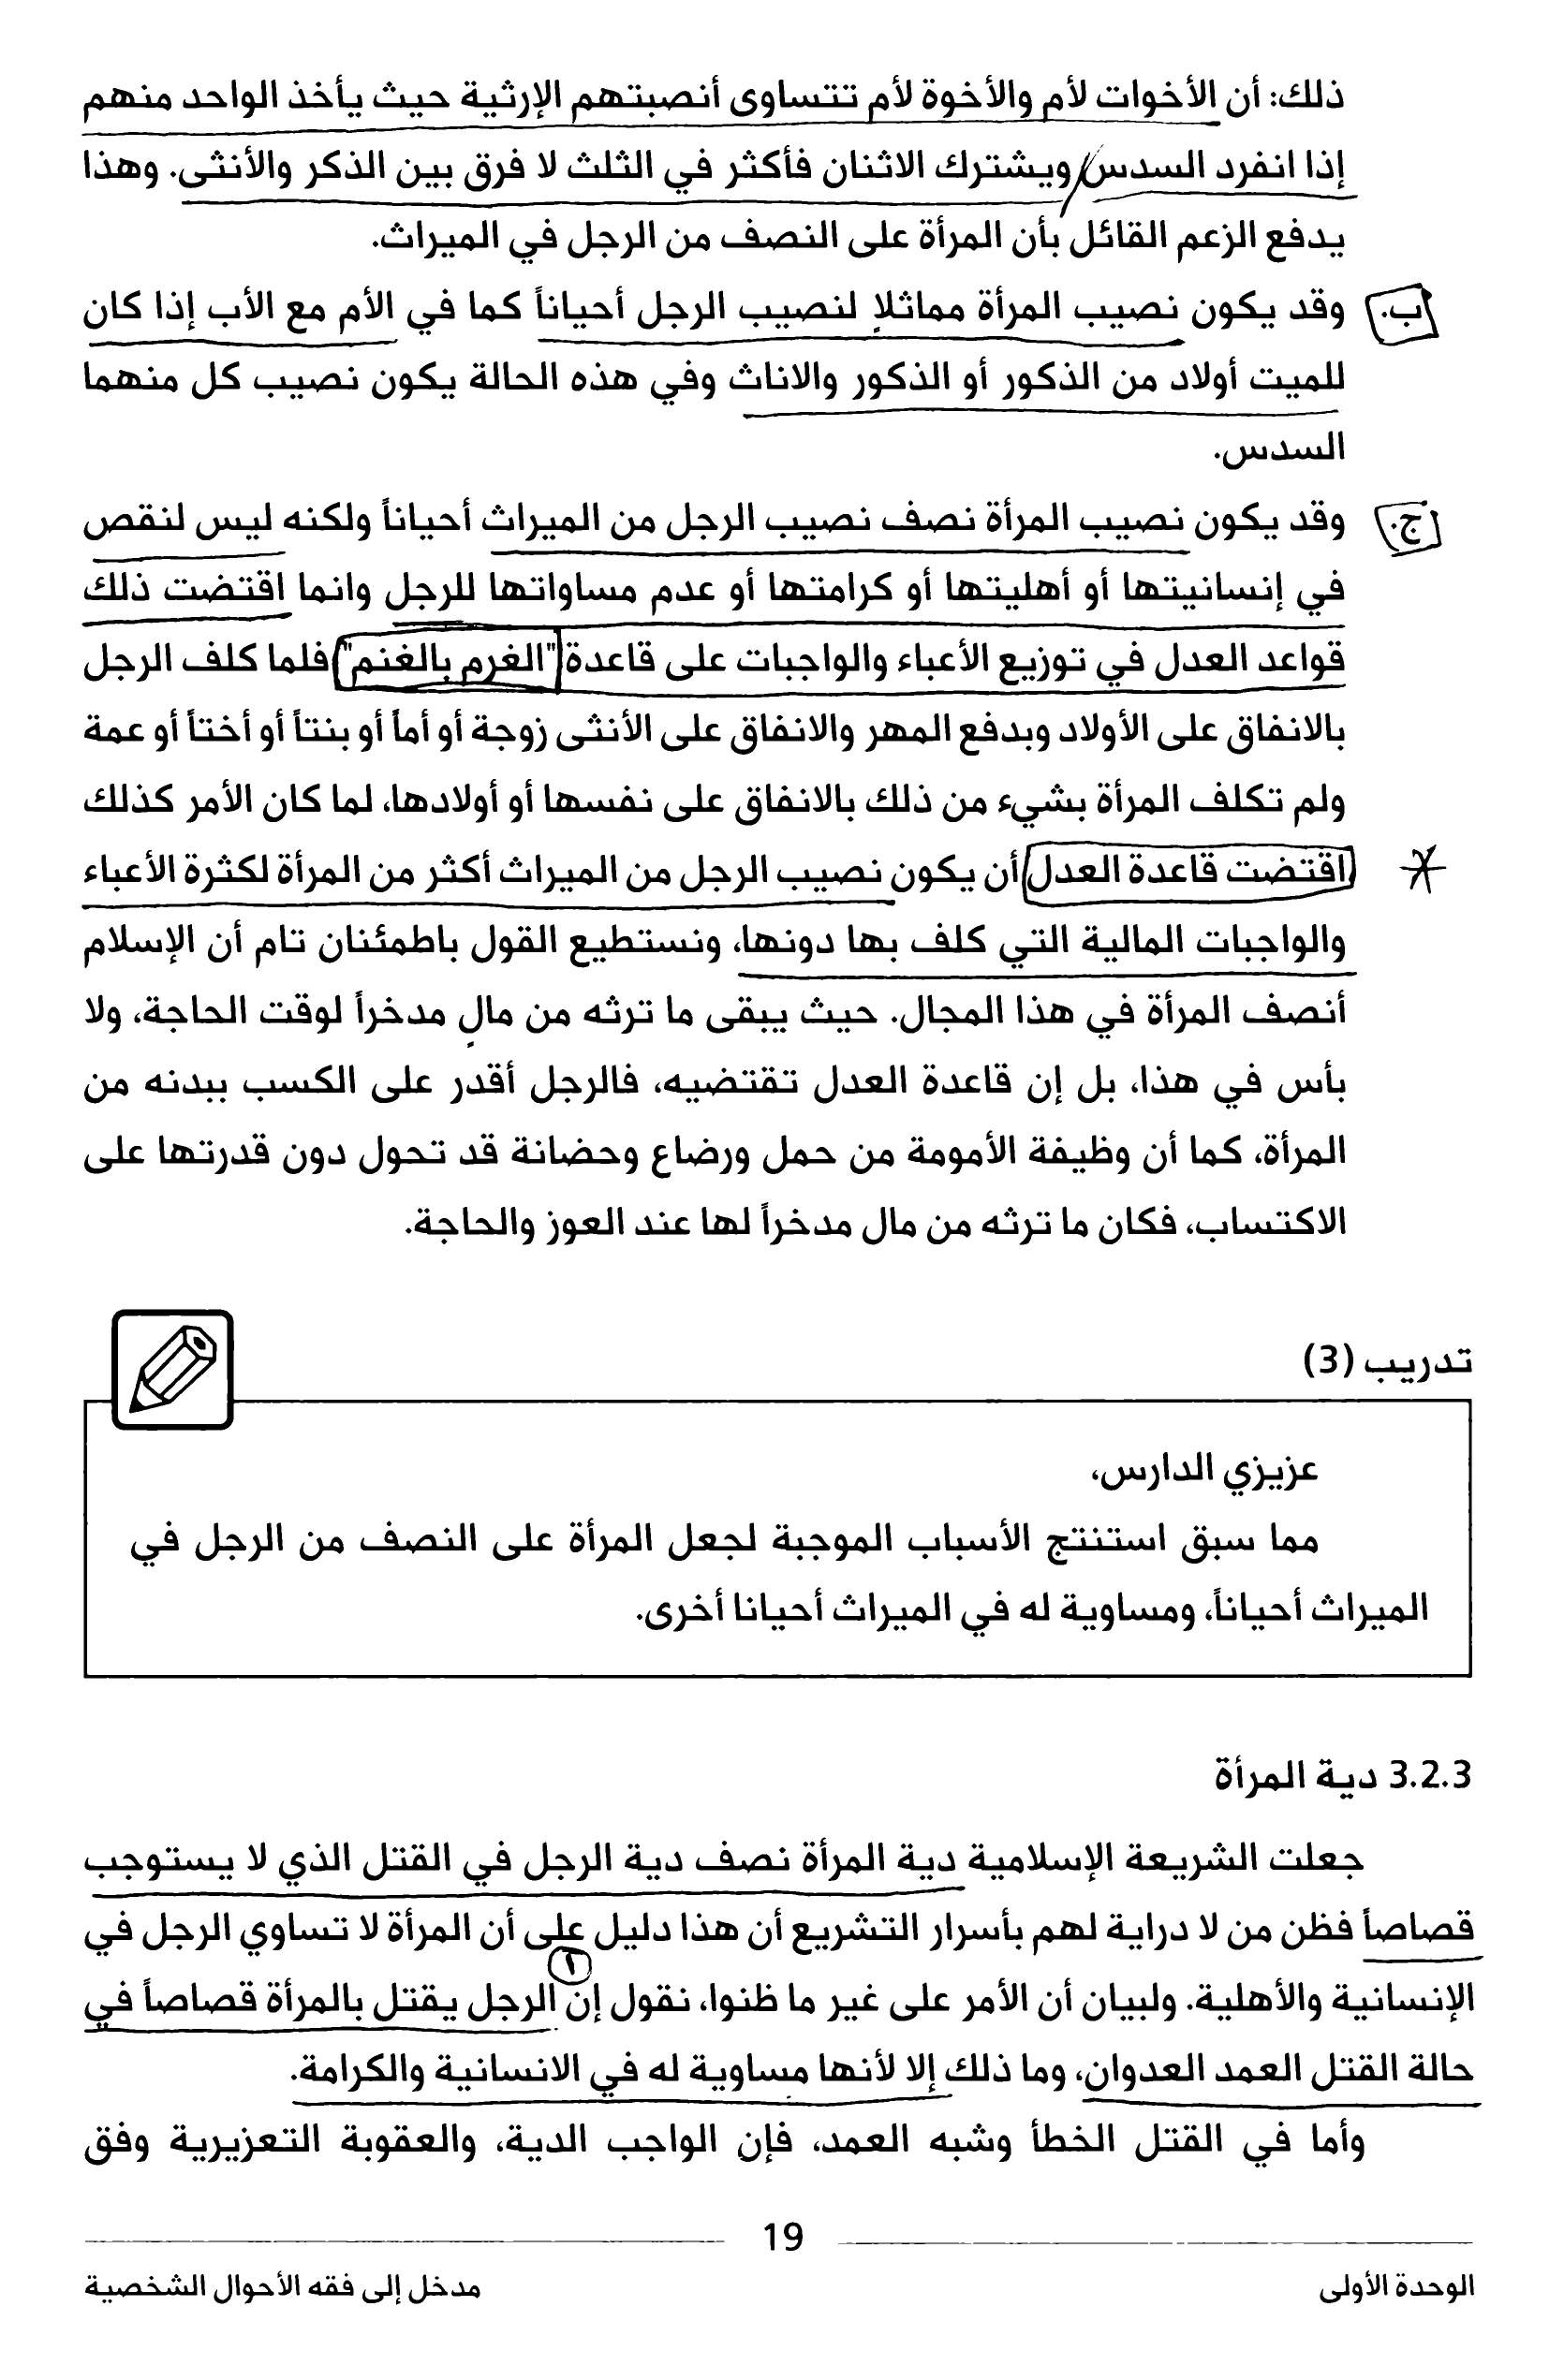 ذلك: أن الأخوات لأم والأخوة لأم تتساوى أنصبتهم الإرثية حيث يأخذ الواحد منهم
إذا انفرد السدس ويشترك الاثنان فأكثر في الثلث لا فرق بين الذكر والأنثى. وهذا
يدفع الزعم القائل بأن المرأة على النصف من الرجل في الميراث.
ب. وقد يكون نصيب المرأة مماثلاٍ لنصيب الرجل أحياناً كما في الأم مع الأب إذا كان
للميت أولاد من الذكور أو الذكور والاناث وفي هذه الحالة يكون نصيب كل منهما
السدس.
ج. وقد يكون نصيب المرأة نصف نصيب الرجل من الميراث أحياناً ولكنه ليس لنقص
في إنسانيتها أو أهليتها أو كرامتها أو عدم مساواتها للرجل وانما اقتضت ذلك
قواعد العدل في توزيع الأعباء والواجبات على قاعدة "الغرم بالغنم" فلما كلف الرجل
بالانفاق على الأولاد وبدفع المهر والانفاق على الأنثى زوجة أو أماً أو بنتاً أو أختاً أو عمة
ولم تكلف المرأة بشيء من ذلك بالانفاق على نفسها أو أولادها، لما كان الأمر كذلك
اقتضت قاعدة العدل أن يكون نصيب الرجل من الميراث أكثر من المرأة لكثرة الأعباء
والواجبات المالية التي كلف بها دونها، ونستطيع القول باطمئنان تام أن الإسلام
أنصف المرأة في هذا المجال. حيث يبقى ما ترثه من مالٍ مدخراً لوقت الحاجة، ولا
بأس في هذا، بل إن قاعدة العدل تقتضيه، فالرجل أقدر على الكسب ببدنه من
المرأة، كما أن وظيفة الأمومة من حمل ورضاع وحضانة قد تحول دون قدرتها على
الاكتساب، فكان ما ترثه من مال مدخراً لها عند العوز والحاجة.
تدريب (3)
عزيزي الدارس،
مما سبق استنتج الأسباب الموجبة لجعل المرأة على النصف من الرجل في
الميراث أحياناً، ومساوية له في الميراث أحيانا أخرى.
3.2.3 دية المرأة
جعلت الشريعة الإسلامية دية المرأة نصف دية الرجل في القتل الذي لا يستوجب
قصاصاً فظن من لا دراية لهم بأسرار التشريع أن هذا دليل على أن المرأة لا تساوي الرجل في
١
الإنسانية والأهلية. ولبيان أن الأمر على غير ما ظنوا، نقول إن الرجل يقتل بالمرأة قصاصاً في
حالة القتل العمد العدوان، وما ذلك إلا لأنها مساوية له في الانسانية والكرامة.
وأما في القتل الخطأ وشبه العمد، فإن الواجب الدية، والعقوبة التعزيرية وفق
19
الوحدة الأولى
مدخل إلى فقه الأحوال الشخصية